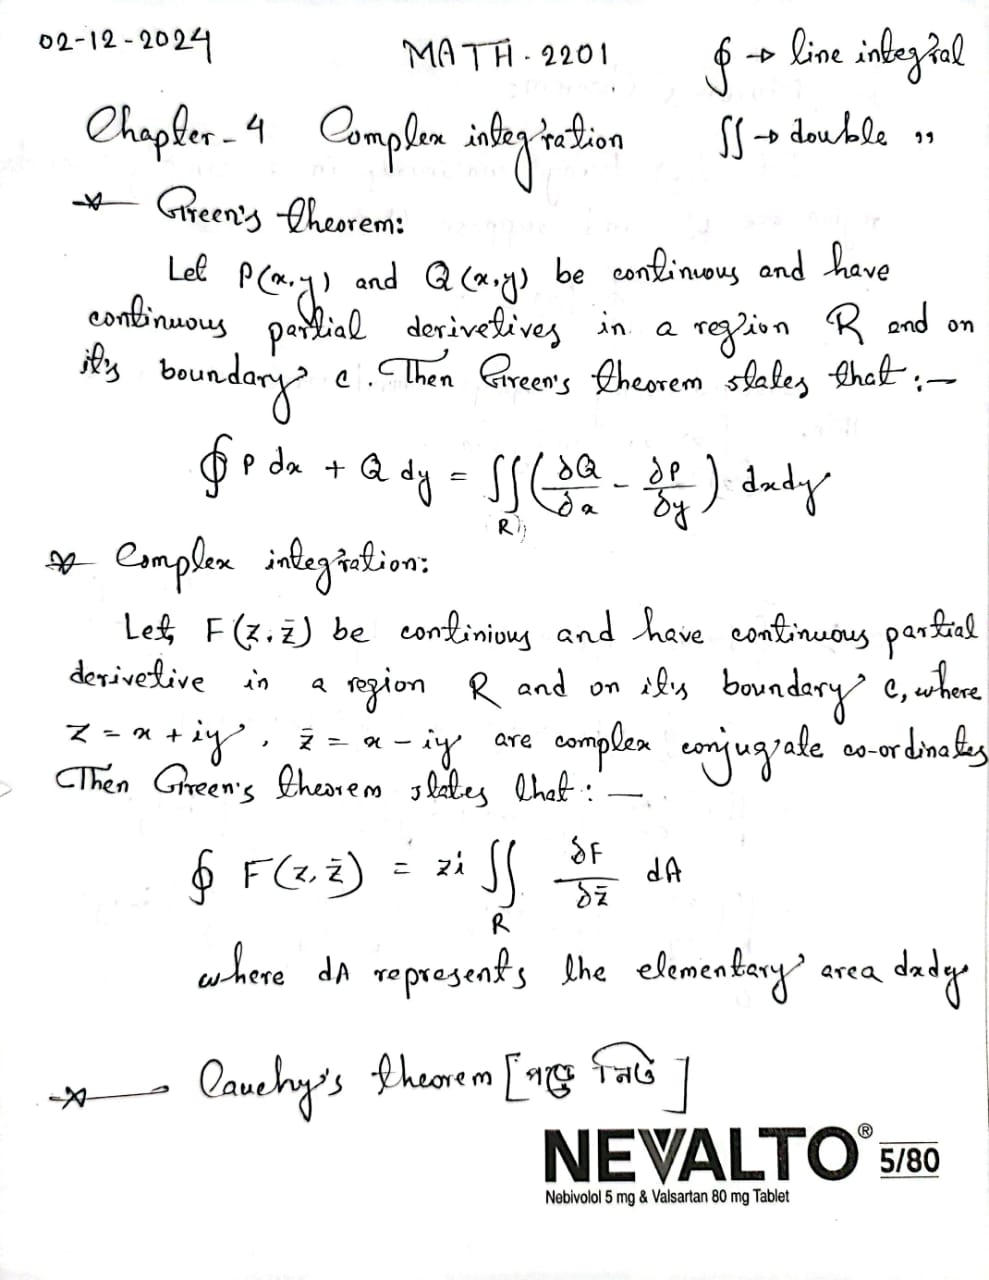 02-12-2024
MATH-2201
∮ → line integral
Chapter-4 Complex integration
∬ → double ,,
Green's theorem:
Let P(x,y) and Q(x,y) be continuous and have
continuous partial derivetives in a region R and on
it's boundary c. Then Green's theorem states that :—
∮ P dx + Q dy = ∬_R (∂Q/∂x - ∂P/∂y) dxdy
Complex integration:
Let, F(z, z̄) be continious and have continuous partial
derivetive in a region R and on it's boundary c, where
z = x + iy, z̄ = x - iy are complex conjugate co-ordinates
Then Green's theorem states that : —
∮ F(z, z̄) = zi ∬_R ∂F/∂z̄ dA
where dA represents the elementary area dxdy
Cauchy's theorem [পড়ে নিতে]
NEVALTO® 5/80
Nebivolol 5 mg & Valsartan 80 mg Tablet